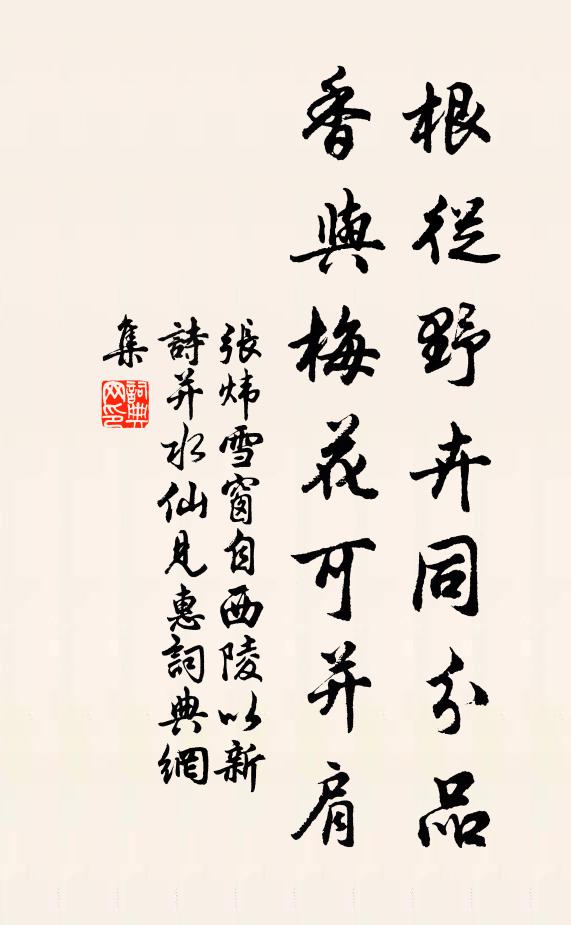 根從野卉同分品
香與梅花可并肩
張炜雪窗自西陵以新
詩并水仙見惠詞典網
集
詞典
网印